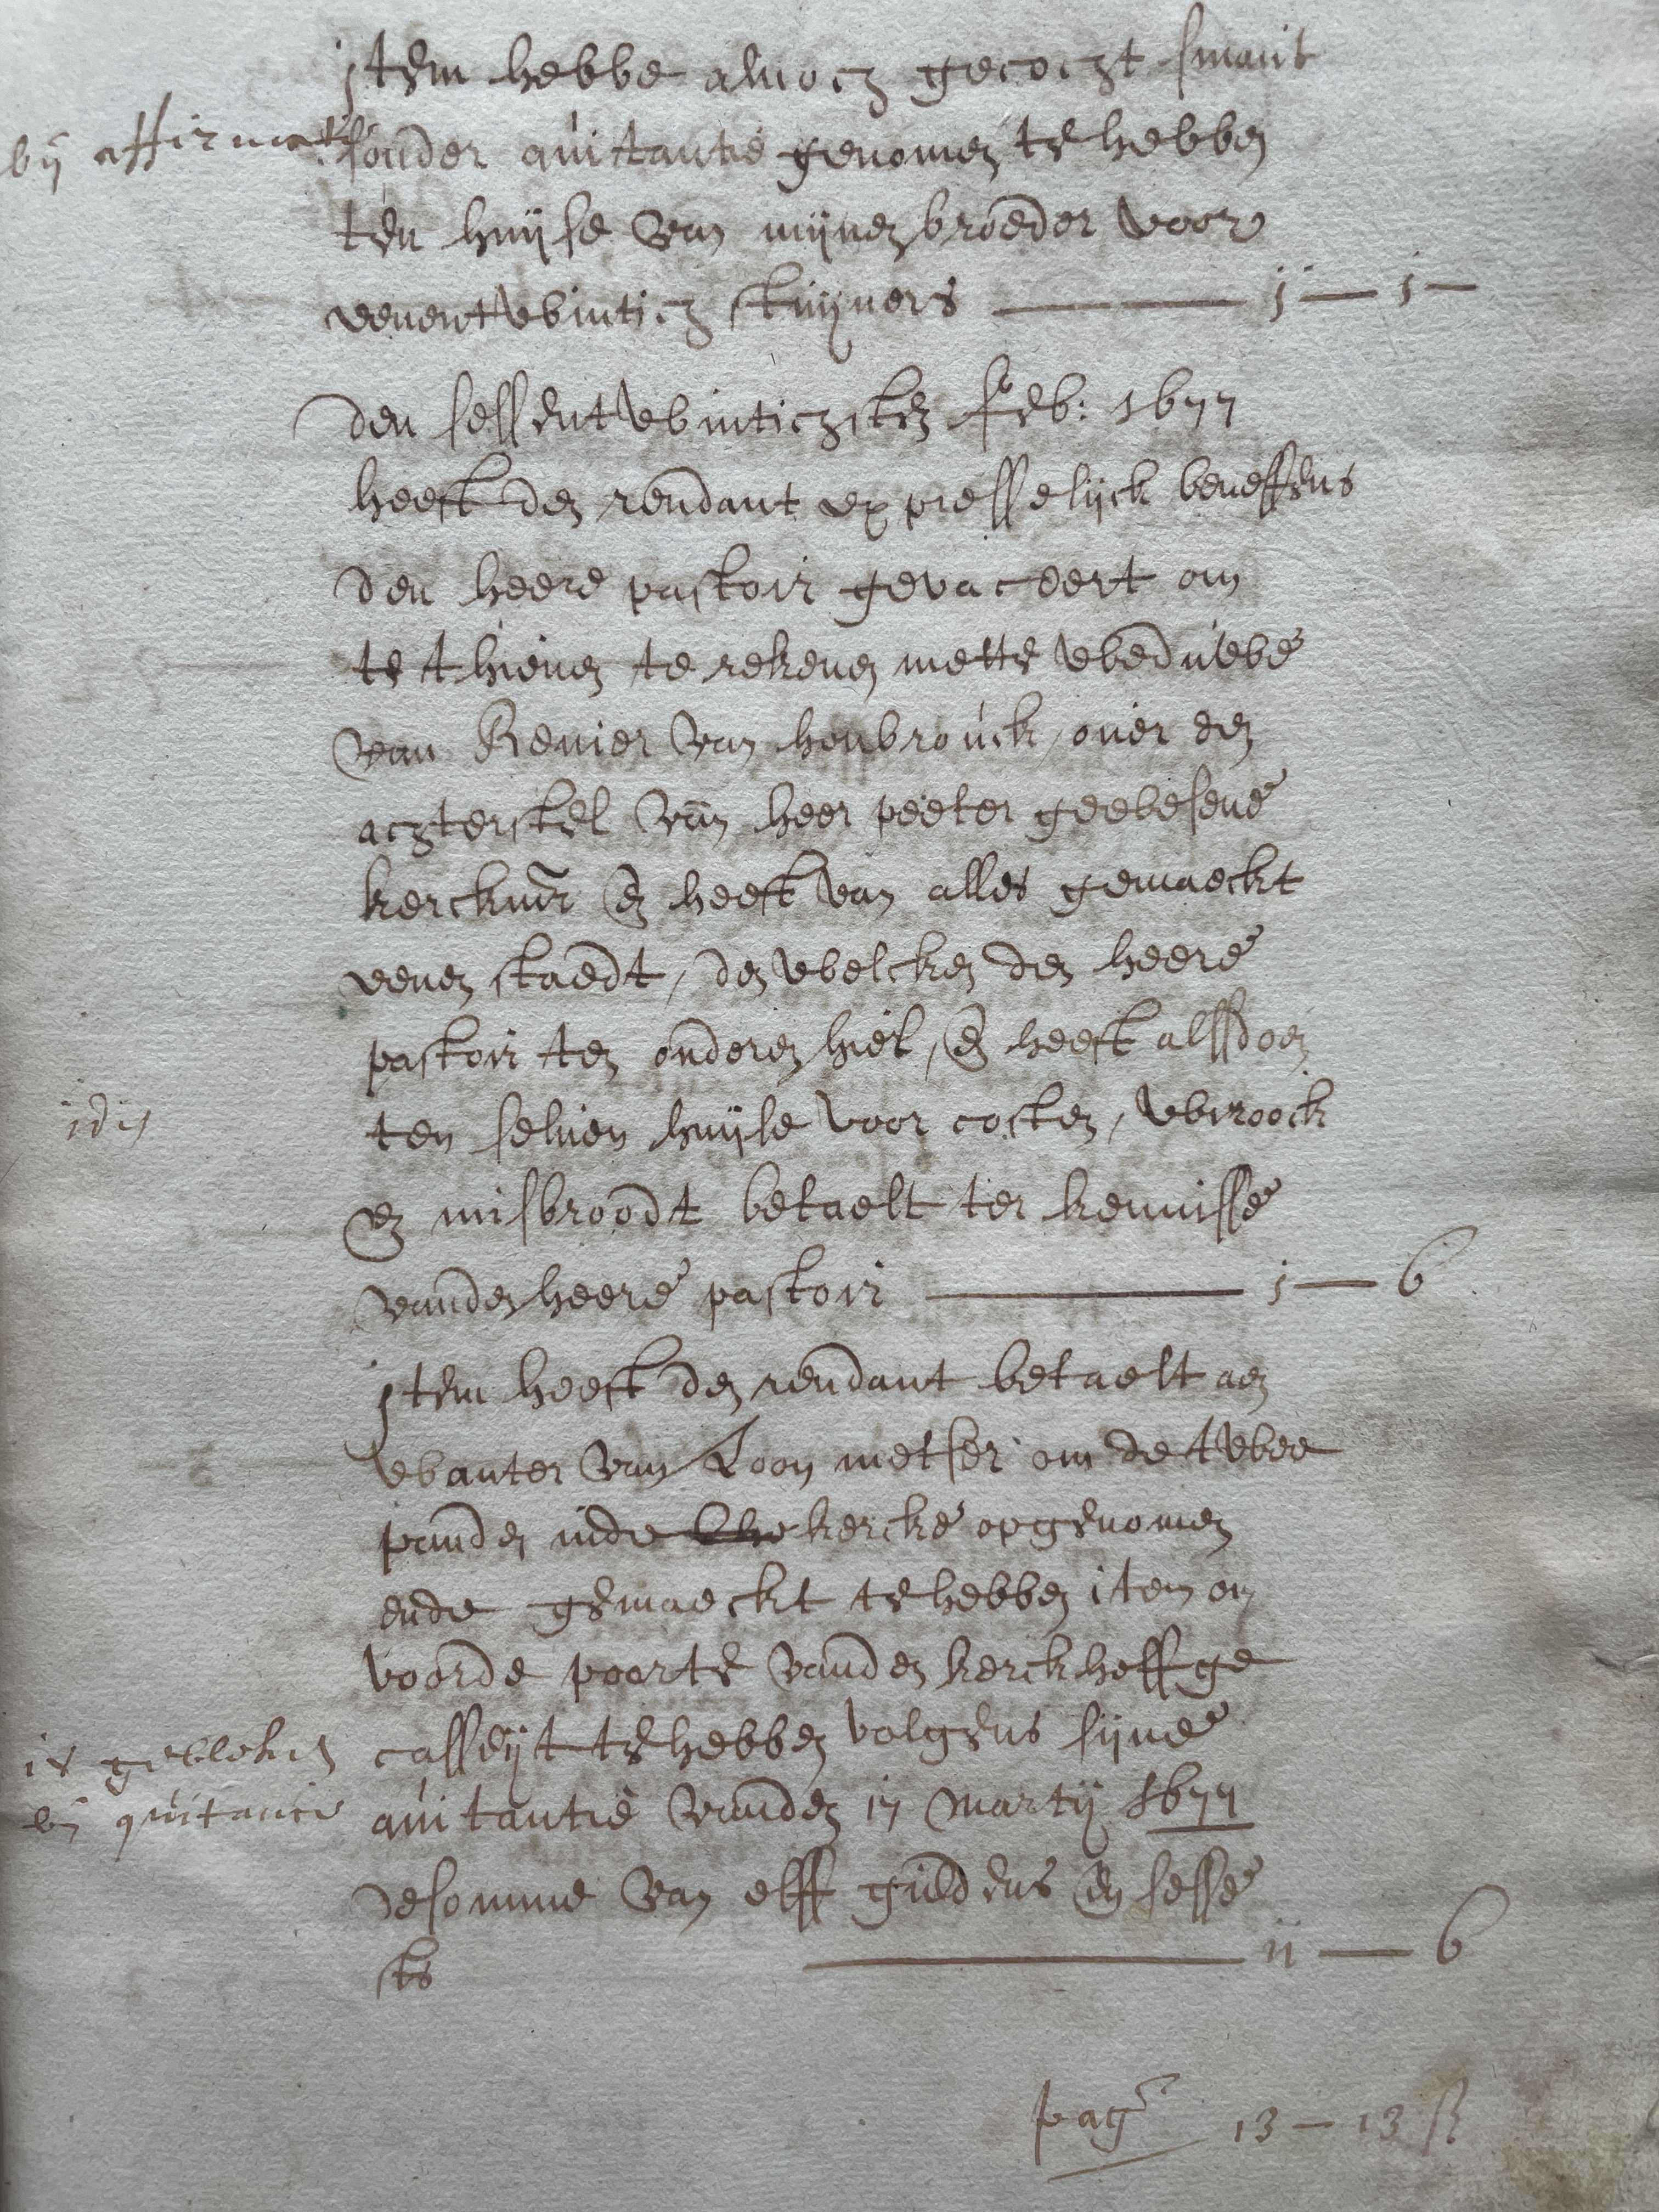 jtem hebbe alnoch gecocht smaut
bij affirmatie
sonder quitantie genomen te hebben
ten huijse van mijnen broeder voor
eenentwintich stuijvers j — j —
den sessentwintichsten feb: 1677
heeft den rendant expresselijck beneffens
den heere pastoir gevaceert om
te thienen te rekenen mette weduwe
van Renier van henbrouck, over den
achterstel van heer peeter geewesene
kerckmr en heeft van alles gemaeckt
eenen staedt, den welcken den heere
pastoir ten onderen hiel, en heeft alssdoen
idem
ten selven huijse voor costen, wiroock
en misbroodt betaelt ter kennisse
vanden heere pastoir j — 6
jtem heeft den rendant betaelt aen
wauter van Loon metser om de twee
panden inde kercke opgenomen
ende gemaeckt te hebben item om
voorde poorte vanden kerckhoff ge
casseijt te hebben volgens sijne
is gebleken
bij quitancie
quitantie vanden 17 martij 1677
de somme van elff guldens en sesse
sts 11 — 6
pag 13 — 13 st